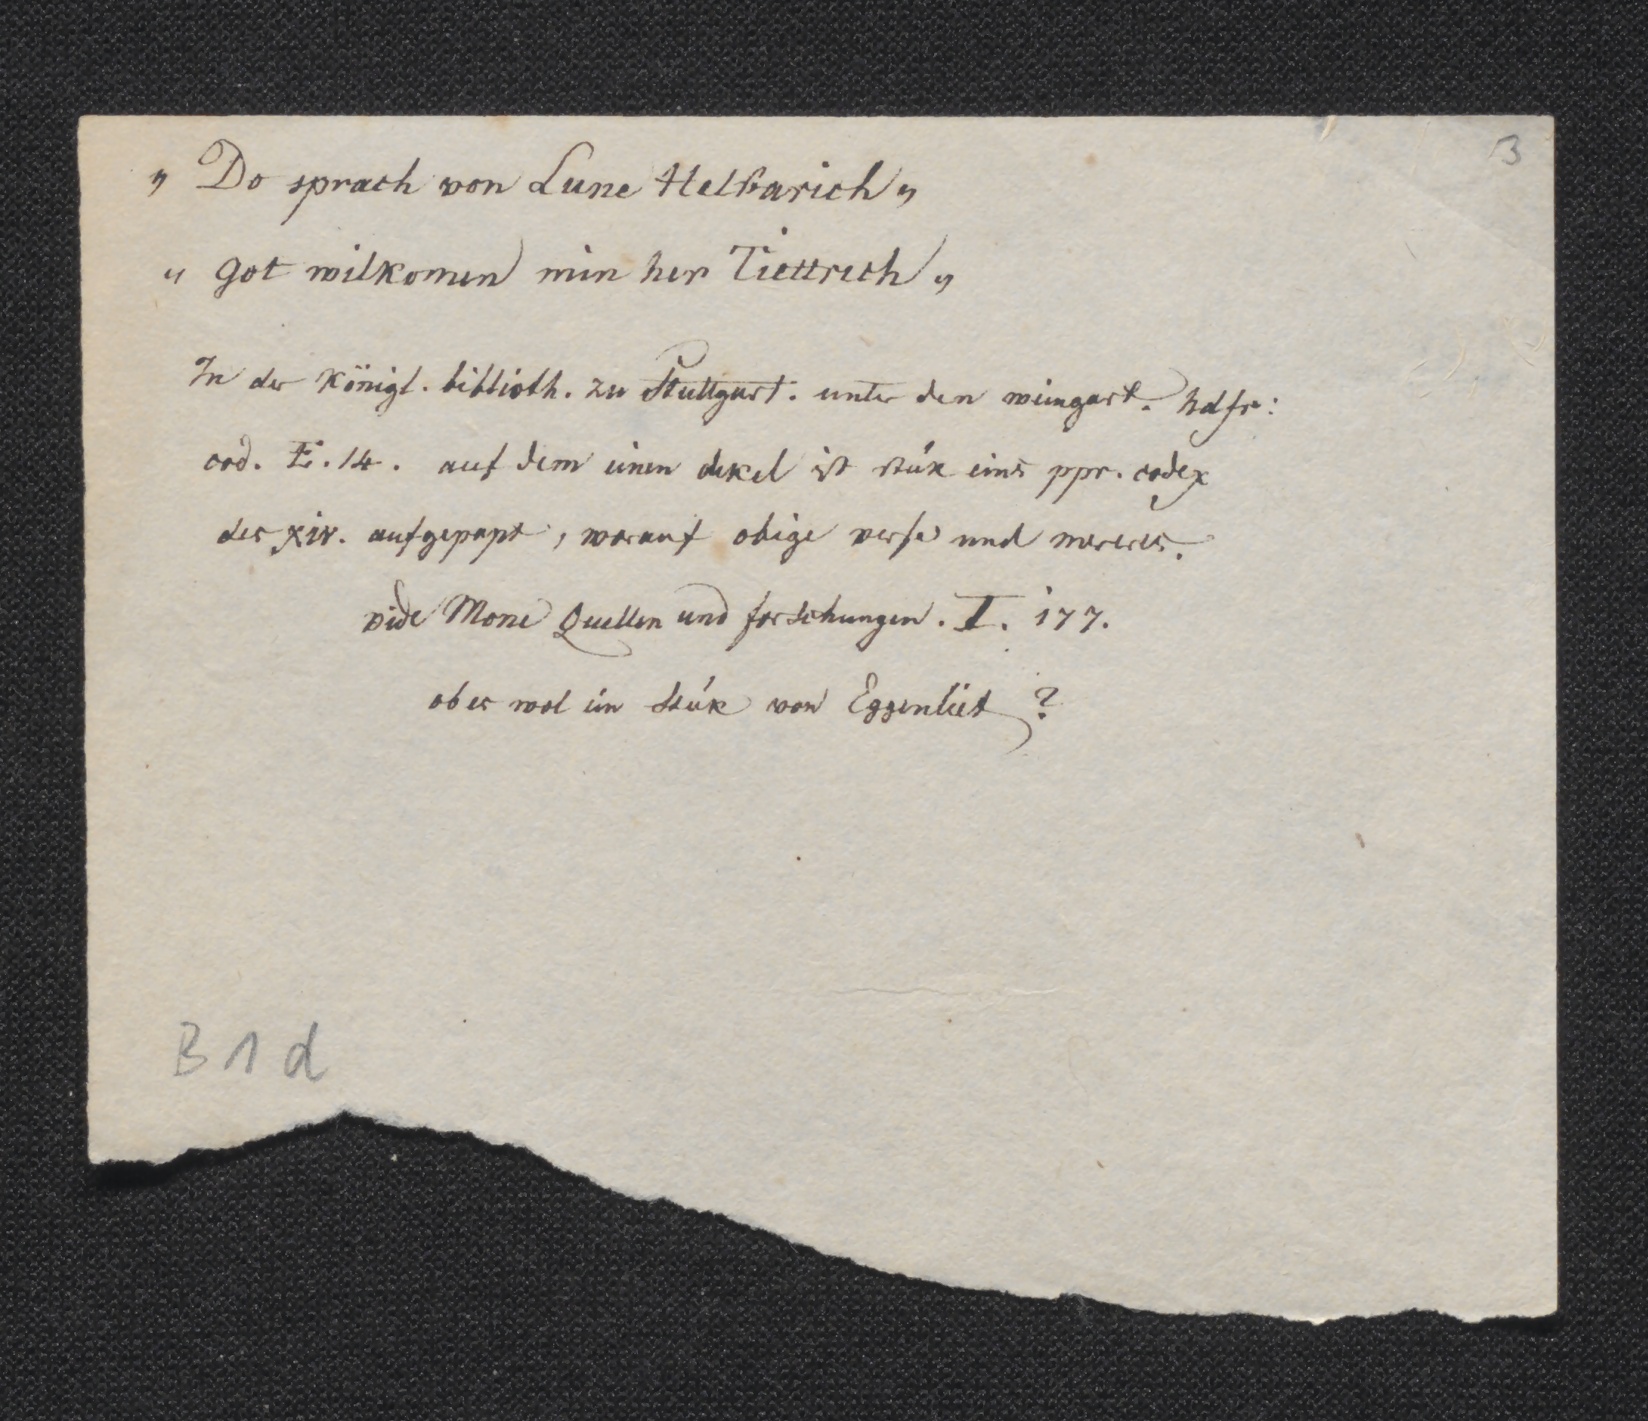 3
„ Do sprach von Lune Helfarich „
„ got wilkomen min her Tiettrich „
In der königl. biblioth. zu Stuttgart. unter den weingart. hdss:
cod. E. 14. auf dem einen dekel ist stük eins ppr. codex
des XIV. aufgepapt, worauf obige verse und mereres.
vide Mone Quellen und forschungen. I. 177.
ob es wol ein stük von Eggenliet ?
B 1 d